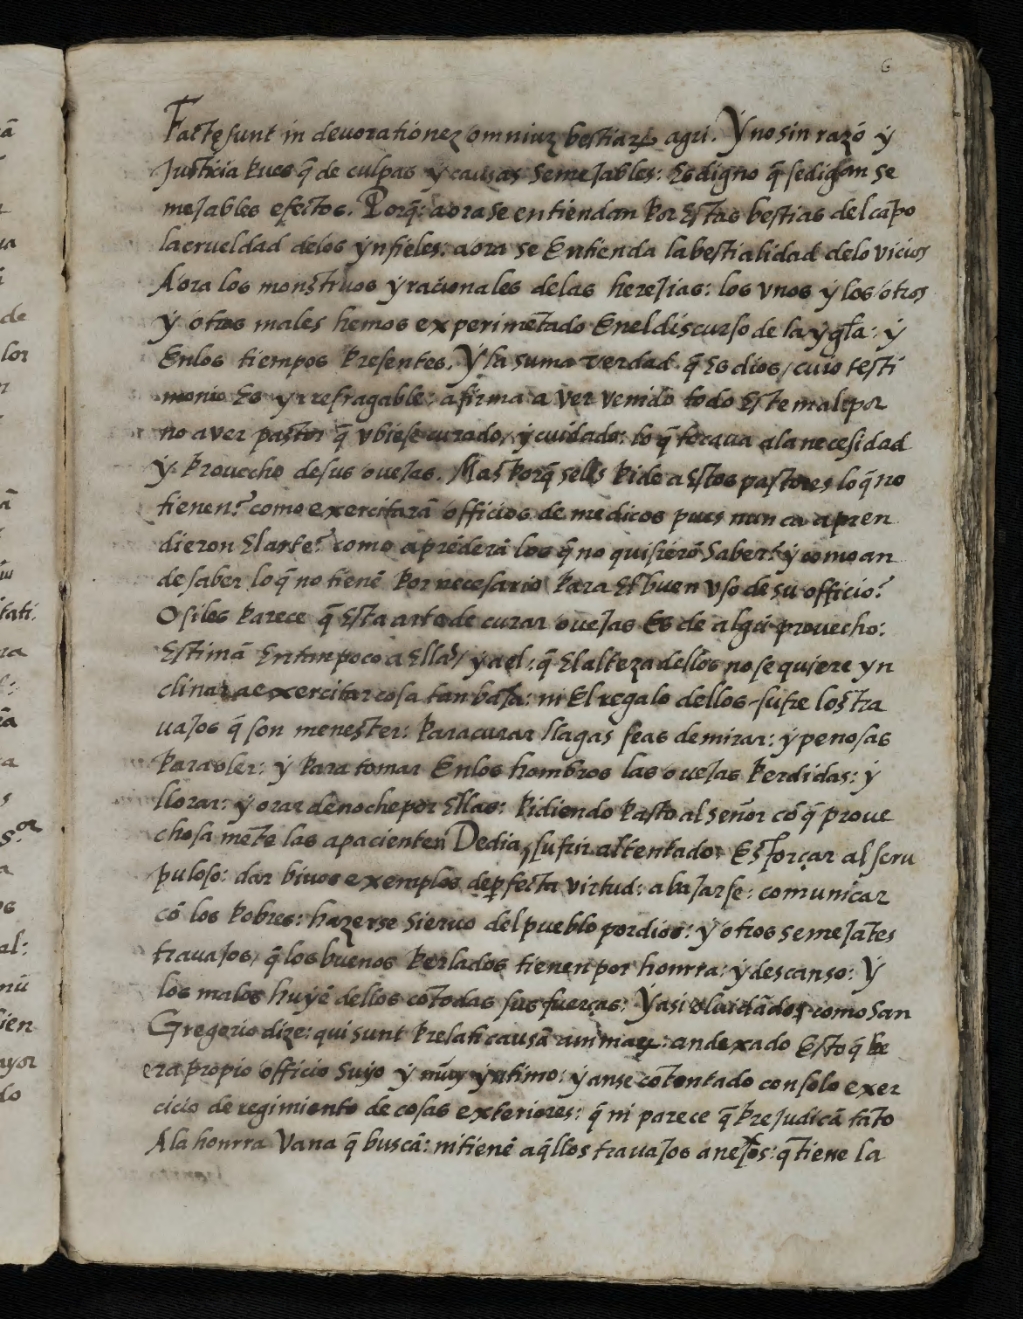 6
Factę sunt in deuorationez omniuz bestiarũ agri. Y no sin razõ ẏ
Justicia pues q̃ de culpas ẏ causas semeJables: Es digno q̃ se digan se
meJables efectos. Porq̃: aora se entiendan por Estas bestias del cãpo
la crueldad de los ẏnfieles: aora se Entienda la bestialidad de lo vicios
Aora los monstruos ẏ racionales de las hereJias: los vnos ẏ los otros
ẏ otros males hemos experimẽtado En el discurso de la ẏglã: ẏ
En los tiempos presentes. Y la suma verdad q̃ Es dios, cuio testi
monio Es yrrefragable: afirma a ver venido todo Este mal por
no aver pastor q̃ vbiese curado, ẏ cuidado: lo q̃ tocaua a la necesidad
ẏ prouecho de sus oveJas. Mas porq̃ se les pide a Estos pastores lo q̃ no
tienen? como exercitarã officios de medicos pues nunca apren
dieron El arte? como aprẽderã los q̃ no quisierõ saber? ẏ como an
de saber lo q̃ no tienẽ por necesario para El buen vso de su officio?
O si les parece q̃ Esta arte de curar oueJas Es de algũ prouecho:
Estimã En tan poco a Ella, ẏ a el: q̃ El alteza dellos no se quiere yn
clinar a exercitar cosa tan baJa: ni El regalo dellos sufre los tra
uaJos q̃ son menester: para curar llagas feas de mirar: ẏ penosas
para oler: ẏ para tomar En los hombros las oueJas perdidas: ẏ
llorar: ẏ orar de noche por Ellas: pidiendo pasto al señor cõ q̃ proue
chosa mẽte las apacienten De dia, sufrir al tentado: Esforçar al scru
puloso: dar biuos exemplos de perfecta virtud: abaJarse: comunicar
cõ los pobres: hazerse sieruo del pueblo por dios: ẏ otros semeJãtes
trauaJos, q̃ los buenos perlados tienen por honrra: ẏ descanso: Y
los malos huyẽ dellos cõ todas sus fuerças: Y asi oluidãdos como San
Gregorio dize: qui sunt prelati causã animarũ: an dexado Esto q̃
era propio officio suyo ẏ muy ẏntimo: ẏ anse cõtentado con solo exer
cicio de regimiento de cosas exteriores: q̃ ni parece q̃ preJudicã tãto
A la honrra vana q̃ buscã: ni tienẽ aq̃llos trauaJos aneJos: q̃ tiene la